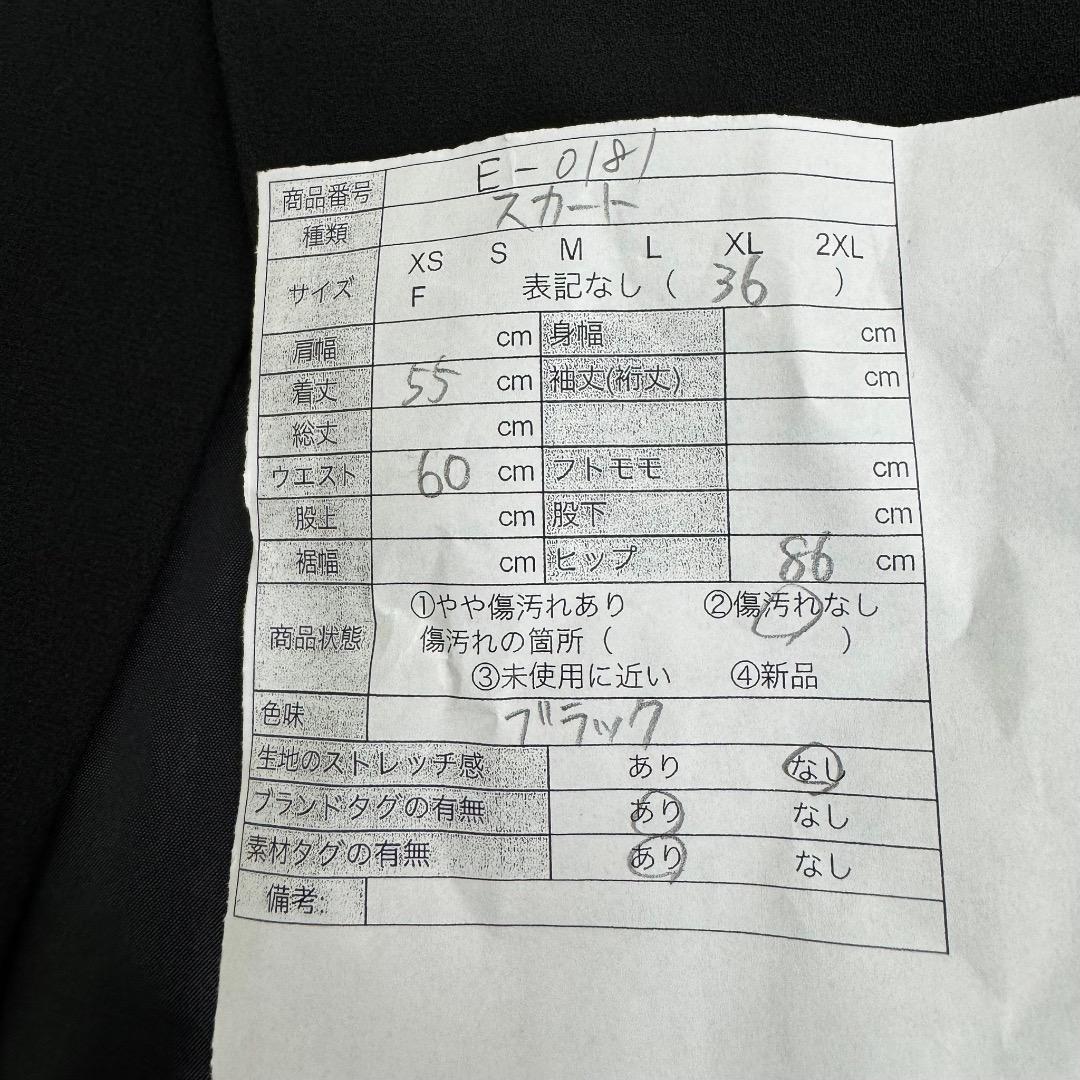 商品番号 E-0181
種類 スカート
サイズ XS S M L XL 2XL
F 表記なし ( 36 )
肩幅 cm 身幅 cm
着丈 55 cm 袖丈(裄丈) cm
総丈 cm
ウエスト 60 cm フトモモ cm
股上 cm 股下 cm
裾幅 cm ヒップ 86 cm
商品状態 ①やや傷汚れあり ②傷汚れなし
傷汚れの箇所 ( )
③未使用に近い ④新品
色味 ブラック
生地のストレッチ感 あり なし
ブランドタグの有無 あり なし
素材タグの有無 あり なし
備考: